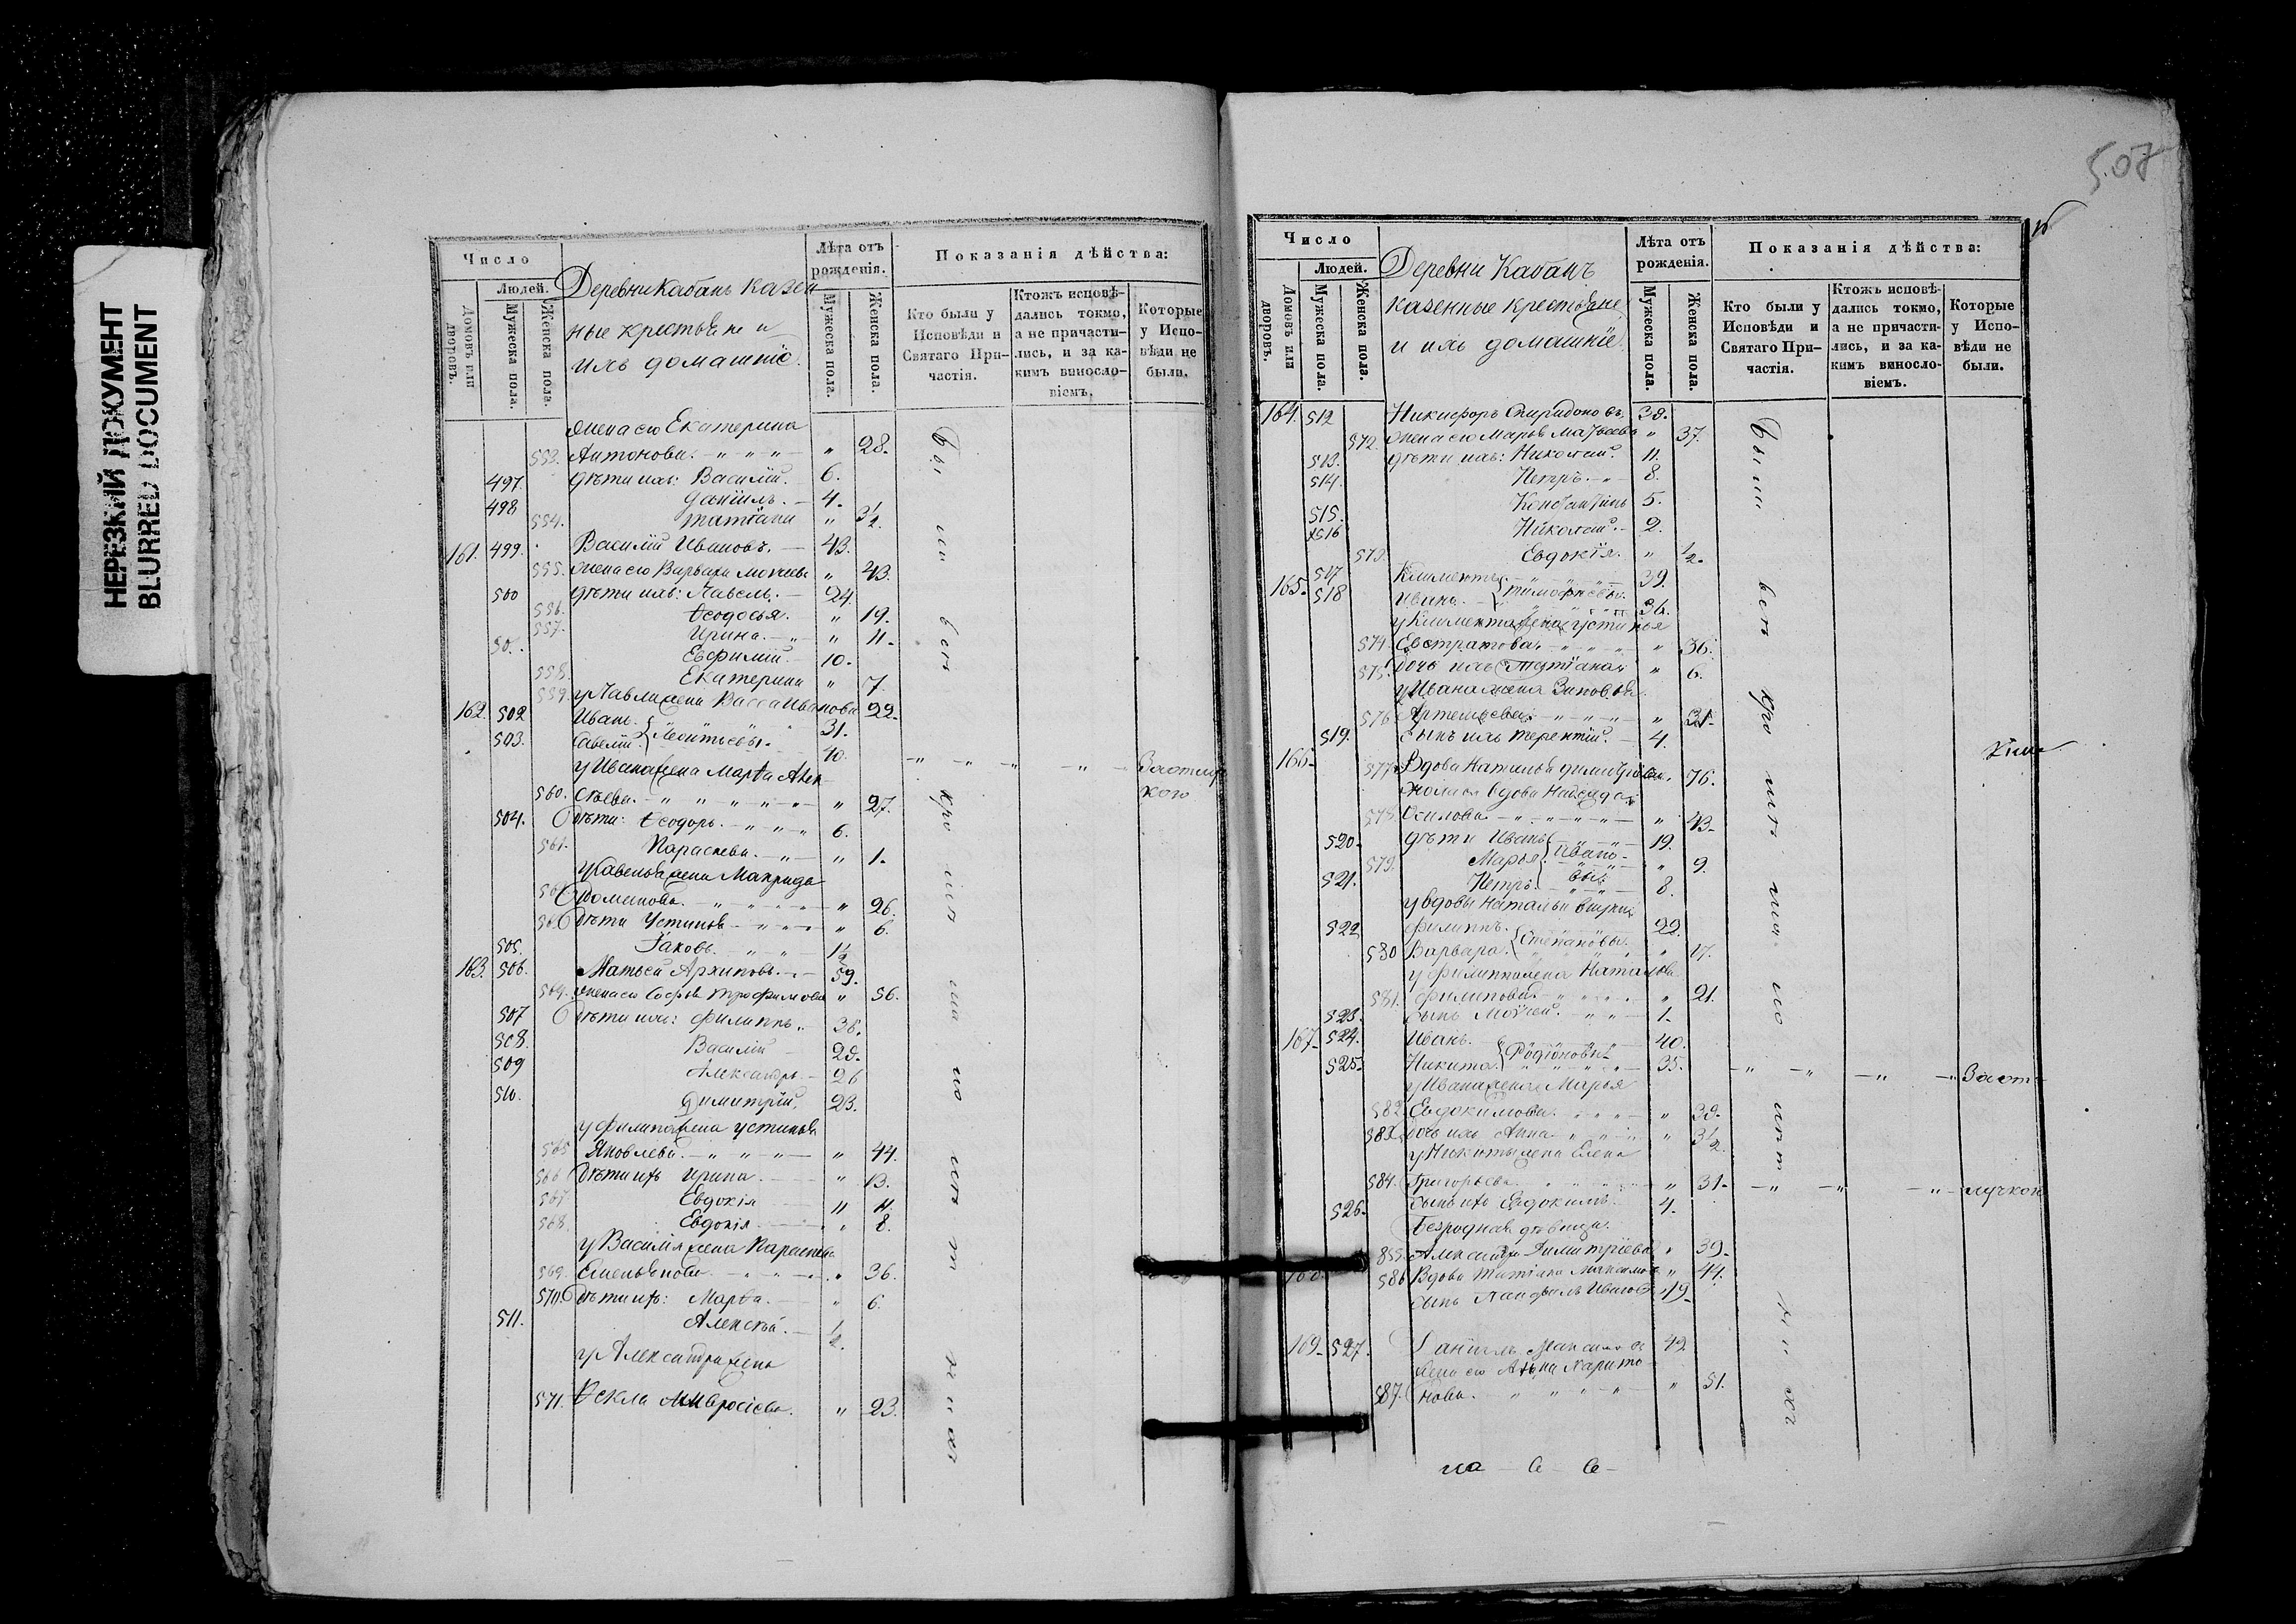 НЕРЕЗКИЙ ДОКУМЕНТ
BLURRED DOCUMENT
Число
Людей.
Домовъ или дворовъ.
Мужеска пола.
Женска пола.
Деревни Кабанъ казен
ные крестьяне и
ихъ домашніе.
Лѣта отъ рожденія.
Мужеска пола.
Женска пола.
Показанія дѣйства:
Кто были у Исповѣди и Святаго Причастія.
Ктожъ исповѣдались токмо, а не причастились, и за какимъ винословіемъ.
Которые у Исповѣди не были.
жена его Екатерина
553. Антонова. „ 28.
497. дѣти ихъ: Василій. 6.
498 Даніилъ. 4.
554. Татіана „ 3½.
161. 499. Василій Ивановъ. 43.
555. жена его Варвара „ 43.
500 дѣти ихъ: Павелъ. 24.
556. Ѳеодосья. „ 19.
557. Ирина. „ 11.
50. Евфимій. 10.
558. Екатерина „ 7.
559. у Павла жена Васса Иванова 22.
162. 502 Иванъ. 31.
503. Савелій. Леонтьевы. 40.
у Ивана жена Марѳа Алек
560. сѣева. „ 27.
504. дѣти: Ѳеодоръ. 6.
561. Параскева. „ 1.
у Савелья жена Макрида
Фоминова. „ 26.
дѣти Устинья „ 6.
505. Іаковъ. 1½
163. 506. Матѳей Архиповъ. 59.
564. жена его Софья Трофимова „ 56.
507 дѣти ихъ: Филиппъ. 38.
508. Василій 29.
509 Александръ 26
510. Димитрій. 23.
у Филипа жена Устинья
565 Яковлева. „ 44.
566 дѣти ихъ Ирина. „ 13.
567 Евдокія „ 11.
568. Евдокія. „ 8.
у Василія жена Параскева
569. Емельянова. „ 36.
570. дѣти ихъ: Марѳа. „ 6.
511. Алексѣй. ½.
у Александра жена
571. Ѳекла Амвросіева. „ 23.
Были всѣ кромѣ
507
Число
Людей.
Домовъ или дворовъ.
Мужеска пола.
Женска пола.
Деревни Кабанъ
казенные крестьяне
и ихъ домашніе.
Лѣта отъ рожденія.
Мужеска пола.
Женска пола.
Показанія дѣйства:
Кто были у Исповѣди и Святаго Причастія.
Ктожъ исповѣдались токмо, а не причастились, и за какимъ винословіемъ.
Которые у Исповѣди не были.
164. 512 Никифоръ Спиридоновъ. 38.
572. жена его Марья Матѳеева „ 37.
513. дѣти ихъ: Николай. 11.
514. Петръ. 8.
515. Константинъ 5.
516 Николай. 2.
573. Евдокія. „ ½.
517 Климентъ. 39.
165. 518 Иванъ. Тимофеевы. 36.
у Климента жена Устинья
574. Евстратова. „ 36.
575. дочь ихъ Татіана „ 6.
у Ивана жена Зиновья
576 Артемьева. „ 31.
519. сынъ ихъ Терентій. 4.
166. 577. Вдова Наталья Димитріева. 76.
578. Осипова. „ 43.
520. дѣти Иванъ 19.
579. Марья Ивано- „ 9.
521. Петръ. вы. 8.
у вдовы Натальи внуки
522 Филиппъ. 22.
530 Варвара. Степановы. „ 17.
у Филиппа жена Наталья
581. Филипова. „ 21.
523. сынъ Моѵсей. 1.
167. 524. Иванъ. 40.
525. Никита. Родіоновы. 35. Заот-
у Ивана жена Марья
582. Евдокимова. „ 39.
583. дочь ихъ Анна „ 3½.
у Никиты жена Елена
584. Григорьева. „ 31. лучкою
526. сынъ ихъ Евдокимъ. 4.
Безродная дѣвица.
855. Александра Димитріева „ 39.
586 Вдова Татіана „ 44.
сынъ Ивановъ 19.
169. 527. Даніилъ 49.
жена его Анна Харито
587. нова. „ 51.
Были всѣ кромѣ